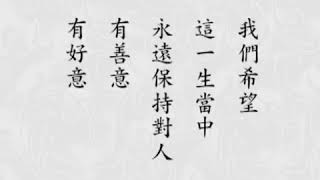 我們希望
這一生當中
永遠保持對人
有善意
有好意